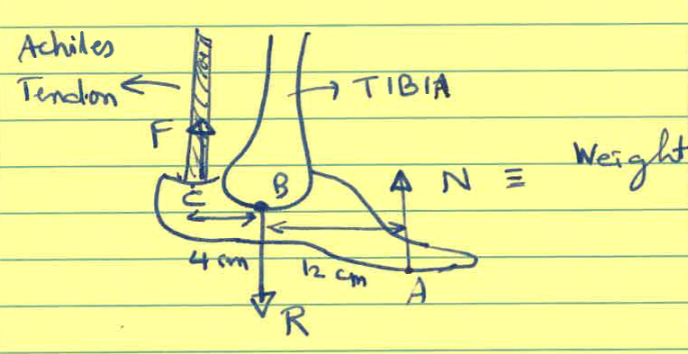 Achiles
Tendon
TIBIA
F
Weight
B
N ≡
C
4 cm
12 cm
A
R